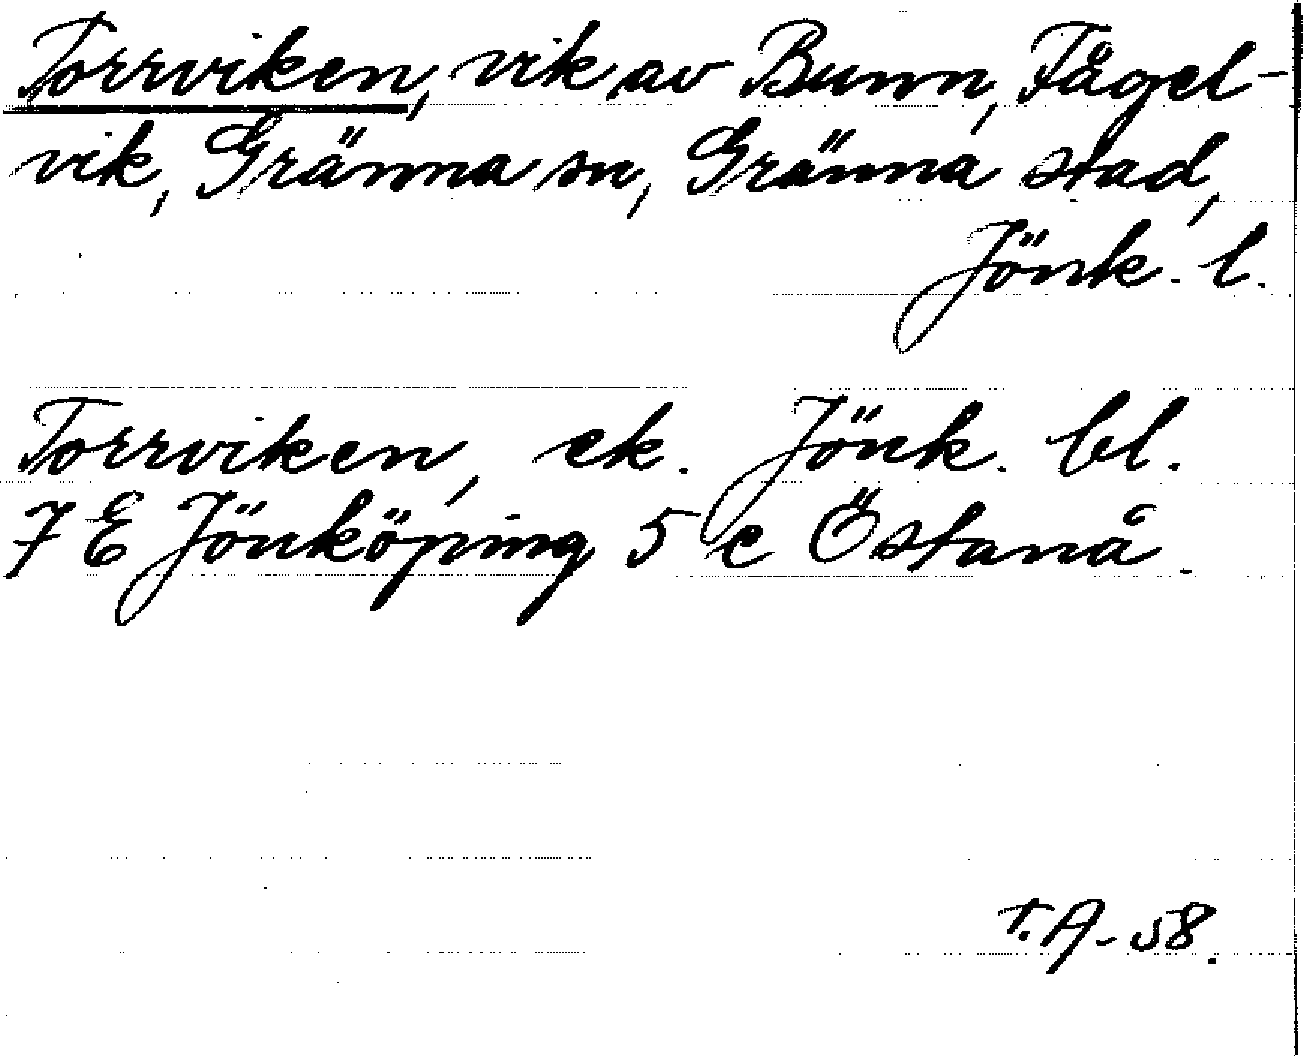 Torrviken, vik av Bunn, Fågel-
vik, Gränna sn, Gränna stad,
Jönk. l.
Torrviken, ek. Jönk. bl.
7 E Jönköping 5 e Östanå.
T.A-58.